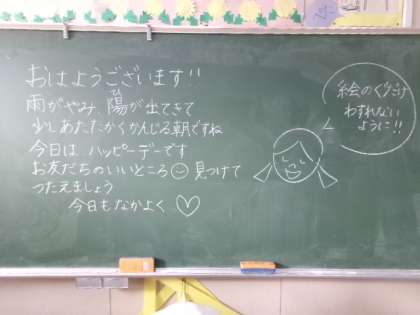 おはようございます!!
雨がやみ、陽が出てきて
少しあたたかくかんじる朝ですね
今日は ハッピーデーです
お友だちのいいところ☺見つけて
つたえましょう
今日もなかよく♡
絵のぐだけ
わすれない
ように!!